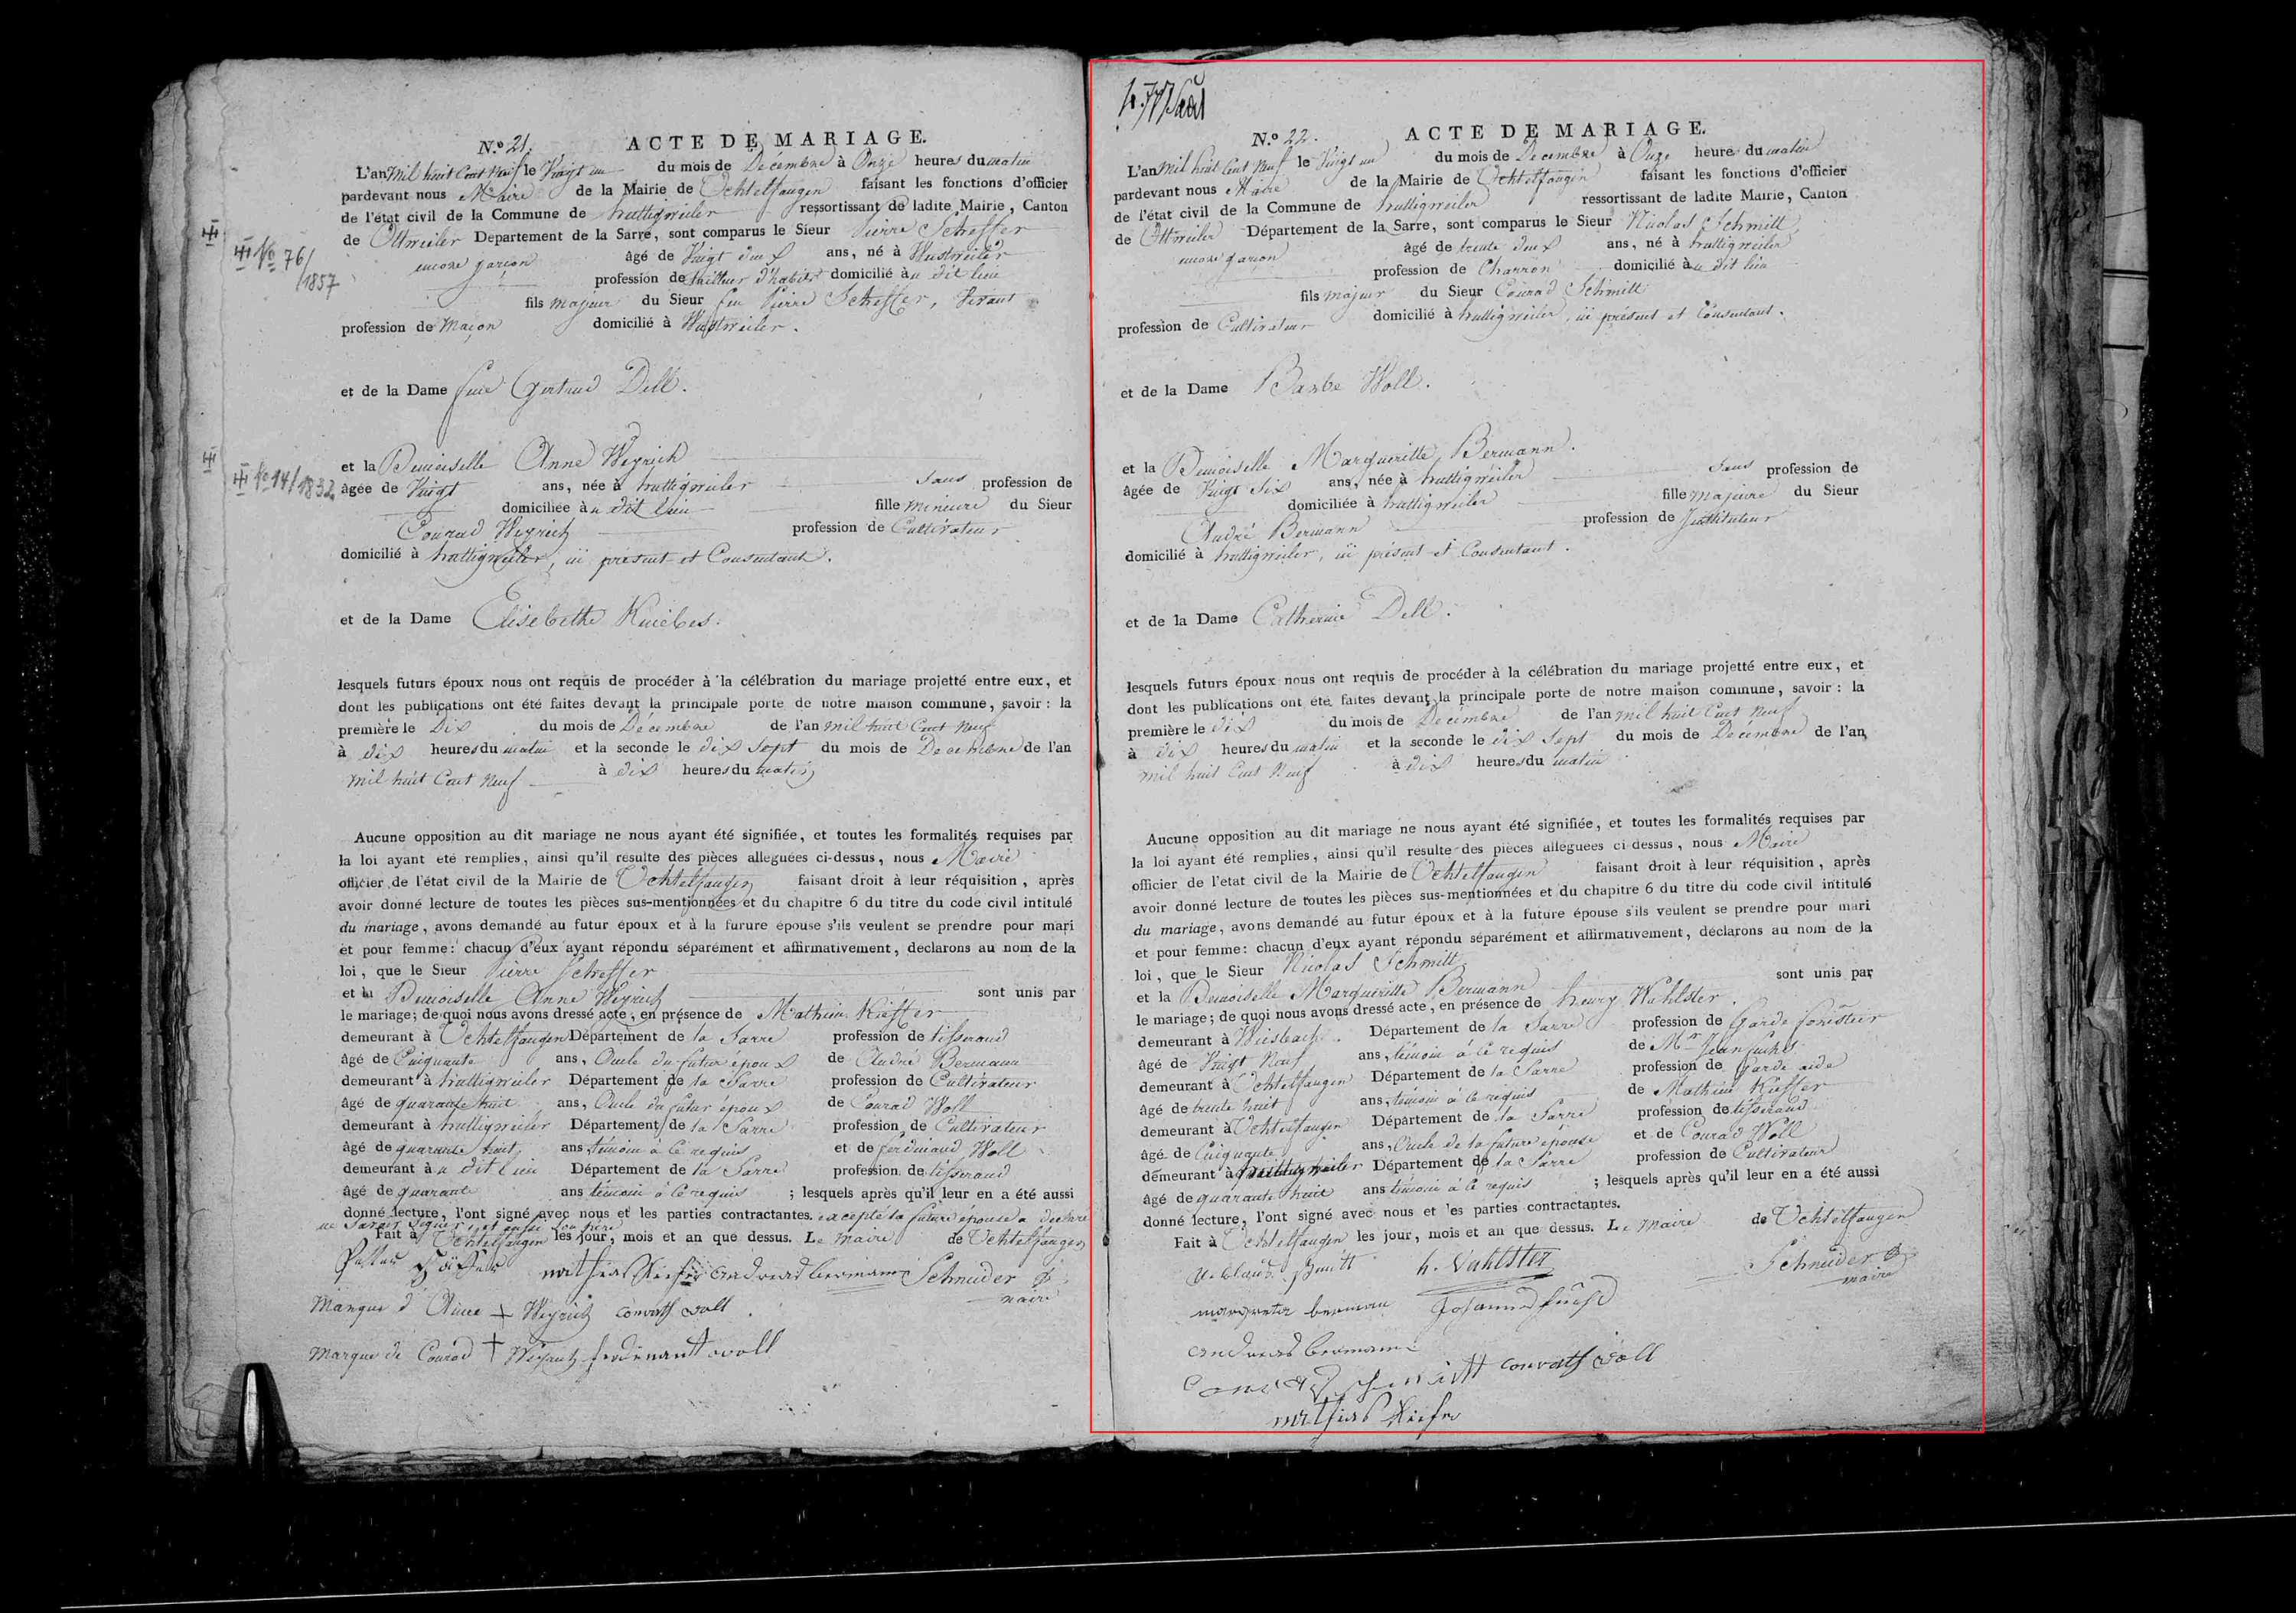 N.o 21.
ACTE DE MARIAGE.
L'an Mil huit Cent Neuf le Vingt un du mois de Décembre à Onze heures du matin
pardevant nous Maire de la Mairie de Uchtelfangen faisant les fonctions d'officier
de l'état civil de la Commune de huttigweiler ressortissant de ladite Mairie, Canton
de Ottweiler Departement de la Sarre, sont comparus le Sieur Pierre Scheffer
encore garçon âgé de Vingt deux ans, né à Wustweiler
profession de tailleur d'habits domicilié àu dit lieu
fils majeur du Sieur feu Pierre Scheffer, Vivant
profession de Maçon domicilié à Wustweiler.
et de la Dame feue Gertrud Dell.
et la Demoiselle Anne Weyrich
âgée de Vingt ans, née à huttigweiler Sans profession de
domiciliée àu dit lieu fille mineure du Sieur
Conrad Weyrich profession de Cultivateur
domicilié à huttigweiler, ici présent et Consentant.
et de la Dame Elisebethe Kuiebes.
lesquels futurs époux nous ont requis de procéder à la célébration du mariage projetté entre eux, et
dont les publications ont été faites devant la principale porte de notre maison commune, savoir : la
première le Dix du mois de Décembre de l'an mil huit Cent Neuf
à dix heures du matin et la seconde le dix Sept du mois de Decembre de l'an
mil huit Cent Neuf à dix heures du matin
Aucune opposition au dit mariage ne nous ayant été signifiée, et toutes les formalités requises par
la loi ayant eté remplies, ainsi qu'il résulte des pièces alleguées ci-dessus, nous Maire
officier de l'état civil de la Mairie de Uchtelfangen faisant droit à leur réquisition, après
avoir donné lecture de toutes les pièces sus-mentionnées et du chapitre 6 du titre du code civil intitulé
du mariage, avons demandé au futur époux et à la furure épouse s'ils veulent se prendre pour mari
et pour femme: chacun d'eux ayant répondu séparément et affirmativement, déclarons au nom de la
loi, que le Sieur Pierre Scheffer
et la Demoiselle Anne Weyrich sont unis par
le mariage; de quoi nous avons dressé acte, en présence de Mathieu Kieffer
demeurant à Uchtelfangen Département de la Sarre profession de tisserand
âgé de Cinquante ans, Oncle du futur époux de André Bermann
demeurant à huttigweiler Département de la Sarre profession de Cultivateur
âgé de quarante huit ans, Oncle du futur époux de Conrad Woll
demeurant à huttigweiler Département de la Sarre profession de Cultivateur
âgé de quarante huit ans témoin à ce requis et de ferdinand Woll
demeurant àu dit lieu Département de la Sarre profession de tisserand
âgé de quarante ans témoin à ce requis ; lesquels après qu'il leur en a été aussi
donné lecture, l'ont signé avec nous et les parties contractantes. excepté la future épouse a declaré
ne Savoir Signer, et aussi Son père
Fait à Uchtelfangen les jour, mois et an que dessus. Le Maire de Uchtelfangen
mathias Kiefer andreas bermann Schneider
maire
Marque d'Anne + Weyrich conrath woll
Marque de Conrad + Weyrich ferdinantt woll
III No 76/
1857
III No 14/1832
N.o 22.
ACTE DE MARIAGE.
L'an Mil huit Cent Neuf le Vingt un du mois de Decembre à Onze heures du matin
pardevant nous Maire de la Mairie de Uchtelfangen faisant les fonctions d'officier
de l'état civil de la Commune de huttigweiler ressortissant de ladite Mairie, Canton
de Ottweiler Département de la Sarre, sont comparus le Sieur Nicolas Schmitt
encore garçon âgé de trente deux ans, né à huttigweiler
profession de Charron domicilié àu dit lieu
fils majeur du Sieur Conrad Schmitt
profession de Cultivateur domicilié à huttigweiler, ici présent et Consentant.
et de la Dame Barbe Woll.
et la Demoiselle Marguerille Bermann.
âgée de Vingt Six ans, née à huttigweiler Sans profession de
domiciliée à huttigweiler fille majeure du Sieur
André Bermann profession de Instituteur
domicilié à huttigweiler, ici présent et Consentant.
et de la Dame Catherine Dell.
lesquels futurs époux nous ont requis de procéder à la célébration du mariage projetté entre eux, et
dont les publications ont été faites devant la principale porte de notre maison commune, savoir : la
première le dix du mois de Décembre de l'an mil huit Cent Neuf
à dix heures du matin et la seconde le dix Sept du mois de Décembre de l'an
mil huit Cent Neuf à dix heures du matin
Aucune opposition au dit mariage ne nous ayant été signifiée, et toutes les formalités requises par
la loi ayant été remplies, ainsi qu'il résulte des pièces alléguées ci-dessus, nous Maire
officier de l'etat civil de la Mairie de Uchtelfangen faisant droit à leur réquisition, après
avoir donné lecture de toutes les pièces sus-mentionnées et du chapitre 6 du titre du code civil intitulé
du mariage, avons demandé au futur époux et à la future épouse s'ils veulent se prendre pour mari
et pour femme: chacun d'eux ayant répondu séparément et affirmativement, déclarons au nom de la
loi, que le Sieur Nicolas Schmitt
et la Demoiselle Marguerille Bermann sont unis par
le mariage; de quoi nous avons dressé acte, en présence de henry Wahlster.
demeurant à Wiesbach Département de la Sarre profession de Garde forestier
âgé de Vingt Neuf ans, témoin à ce requis de Mr Jean fuchs
demeurant à Uchtelfangen Département de la Sarre profession de Garde aide
âgé de trente huit ans, témoin à ce requis de Mathieu Kieffer
demeurant à Uchtelfangen Département de la Sarre profession de tisserand
âgé de Cinquante ans, Oncle de la future épouse et de Conrad Woll
demeurant à huttigweiler Département de la Sarre profession de Cultivateur
âgé de quarante huit ans témoin à ce requis ; lesquels après qu'il leur en a été aussi
donné lecture, l'ont signé avec nous et les parties contractantes.
Fait à Uchtelfangen les jour, mois et an que dessus. Le Maire de Uchtelfangen
h. Wahlster Schneider
maire
margreta berman Johannes fuchs
andreas bermann
conrath woll
mathias Kiefer